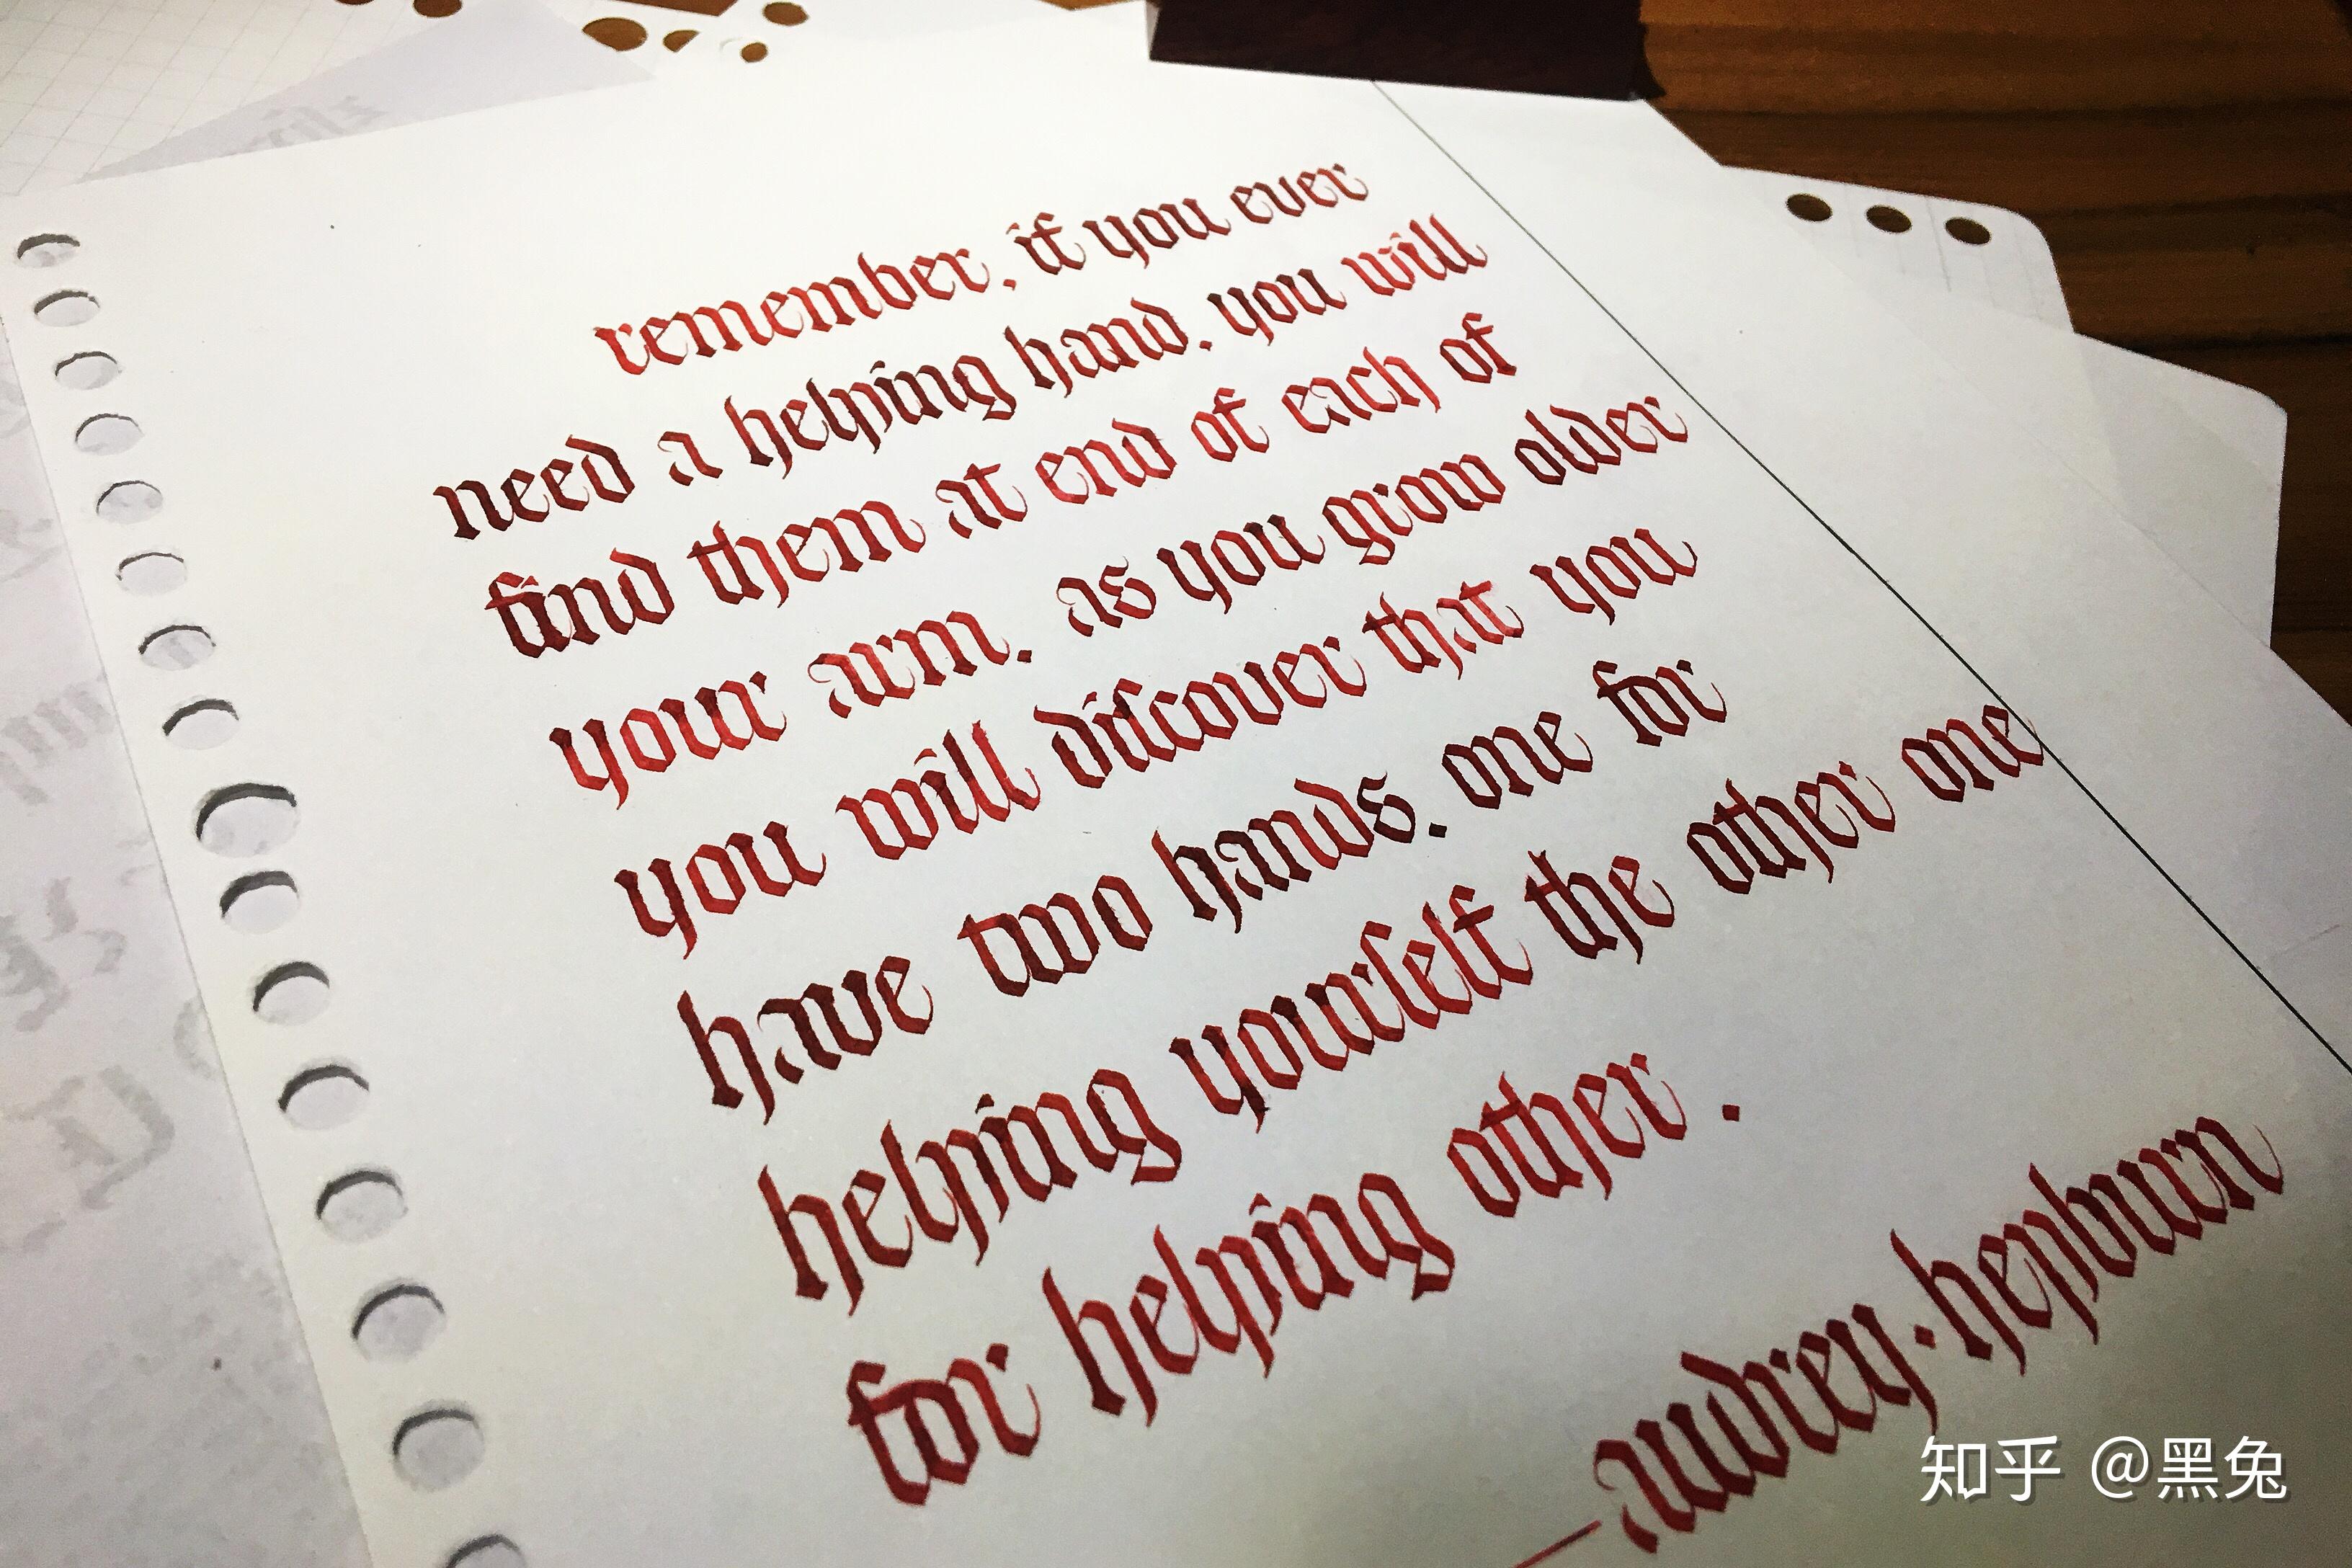 remember. if you ever
need a helping hand. you will
find them at end of each of
your arm. as you grow older
you will diſcover that you
have two hands. one for
helping yourſelf the other one
for helping other .
—audrey·hepburn
知乎 @黑兔